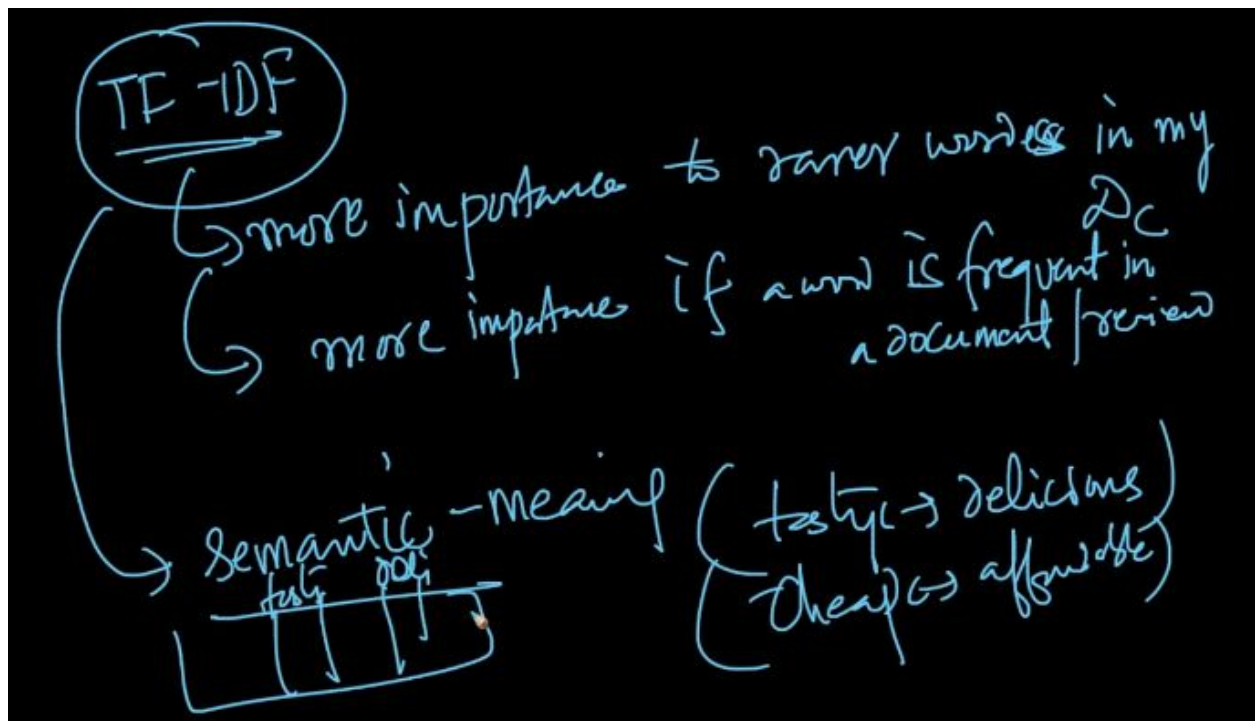 TF-IDF
more importance to rarer words in my
Dc
more importance if a word is frequent in
a document/review
semantic-meaning (tasty ↔ delicious)
(cheap ↔ affordable)
tasty deli